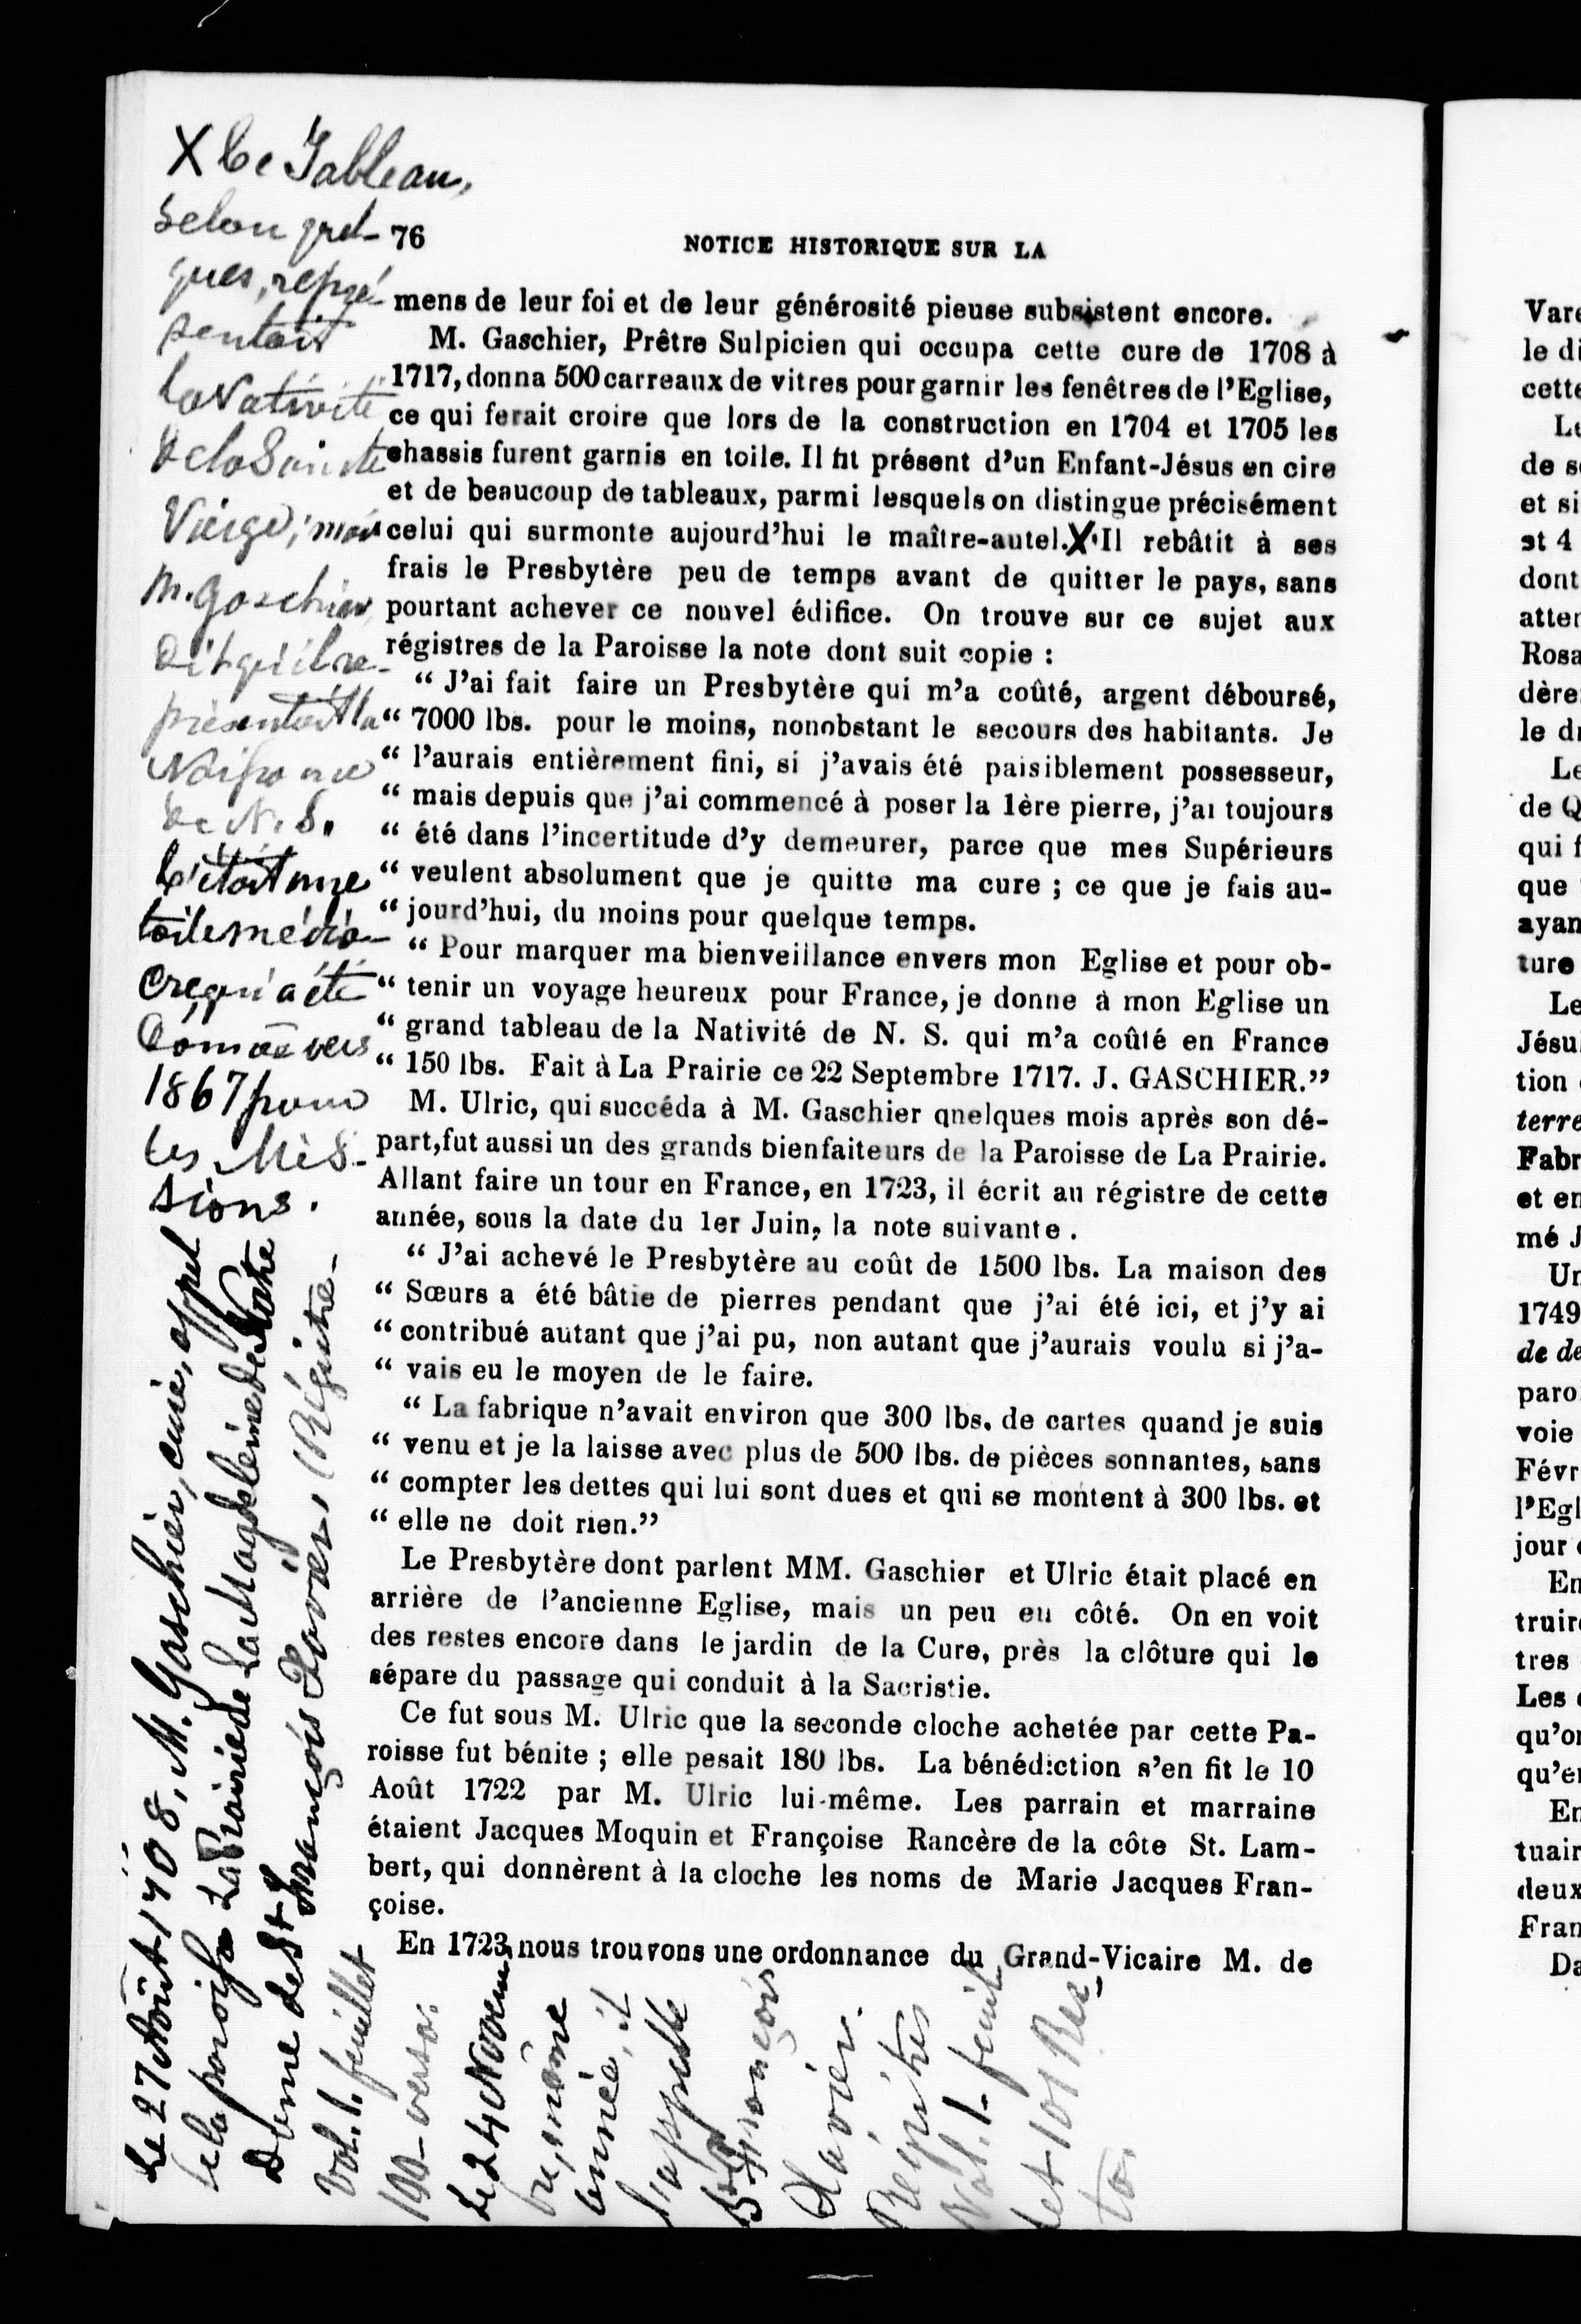 X Ce Tableau,
selon quel-
ques, repré-
sentait
la Nativité
de la Sainte
Vierge; mais
M. Gaschier
dit qu'il re-
présentait la
Naissance
de N. S.
C'était une
toile médio-
cre qui a été
donnée vers
1867 pour
les Mis-
sions.
76 NOTICE HISTORIQUE SUR LA
mens de leur foi et de leur générosité pieuse subsistent encore.
M. Gaschier, Prêtre Sulpicien qui occupa cette cure de 1708 à
1717, donna 500 carreaux de vitres pour garnir les fenêtres de l'Eglise,
ce qui ferait croire que lors de la construction en 1704 et 1705 les
chassis furent garnis en toile. Il fit présent d'un Enfant-Jésus en cire
et de beaucoup de tableaux, parmi lesquels on distingue précisément
celui qui surmonte aujourd'hui le maître-autel. X Il rebâtit à ses
frais le Presbytère peu de temps avant de quitter le pays, sans
pourtant achever ce nouvel édifice. On trouve sur ce sujet aux
régistres de la Paroisse la note dont suit copie :
“ J'ai fait faire un Presbytère qui m'a coûté, argent déboursé,
“ 7000 lbs. pour le moins, nonobstant le secours des habitants. Je
“ l'aurais entièrement fini, si j'avais été paisiblement possesseur,
“ mais depuis que j'ai commencé à poser la 1ère pierre, j'ai toujours
“ été dans l'incertitude d'y demeurer, parce que mes Supérieurs
“ veulent absolument que je quitte ma cure ; ce que je fais au-
“ jourd'hui, du moins pour quelque temps.
“ Pour marquer ma bienveillance envers mon Eglise et pour ob-
“ tenir un voyage heureux pour France, je donne à mon Eglise un
“ grand tableau de la Nativité de N. S. qui m'a coûté en France
“ 150 lbs. Fait à La Prairie ce 22 Septembre 1717. J. GASCHIER.”
M. Ulric, qui succéda à M. Gaschier qnelques mois après son dé-
part, fut aussi un des grands bienfaiteurs de la Paroisse de La Prairie.
Allant faire un tour en France, en 1723, il écrit au régistre de cette
année, sous la date du 1er Juin, la note suivante .
“ J'ai achevé le Presbytère au coût de 1500 lbs. La maison des
“ Sœurs a été bâtie de pierres pendant que j'ai été ici, et j'y ai
“ contribué autant que j'ai pu, non autant que j'aurais voulu si j'a-
“ vais eu le moyen de le faire.
“ La fabrique n'avait environ que 300 lbs. de cartes quand je suis
“ venu et je la laisse avec plus de 500 lbs. de pièces sonnantes, sans
“ compter les dettes qui lui sont dues et qui se montent à 300 lbs. et
“ elle ne doit rien.”
Le Presbytère dont parlent MM. Gaschier et Ulric était placé en
arrière de l'ancienne Eglise, mais un peu en côté. On en voit
des restes encore dans le jardin de la Cure, près la clôture qui le
sépare du passage qui conduit à la Sacristie.
Ce fut sous M. Ulric que la seconde cloche achetée par cette Pa-
roisse fut bénite ; elle pesait 180 lbs. La bénédiction s'en fit le 10
Août 1722 par M. Ulric lui-même. Les parrain et marraine
étaient Jacques Moquin et Françoise Rancère de la côte St. Lam-
bert, qui donnèrent à la cloche les noms de Marie Jacques Fran-
çoise.
En 1723, nous trouvons une ordonnance du Grand-Vicaire M. de
Le 27 Août 1708, M. Gaschier, curé, appel
le la paroisse La Prairie de La Magdeleine de Notre
Dame de St François Xavier, (Régistre
Vol. 1. feuillet
100 verso.
Le 24 Novem
bre, même
année, il
l'appelle
St François
Xavier.
Régistres
Vol. 1. feuil-
let 101 Rec-
to.
Vare
le di
cette
Le
de se
et si
et 4
dont
atter
Rosa
dère
le dr
Le
de Q
qui f
que
ayan
ture
Le
Jésu
tion
terre
Fabr
et en
mé J
Un
1749
de de
paro
voie
Févr
l'Egl
jour
En
truire
tres
Les
qu'on
qu'e
En
tuair
deux
Fran
Da